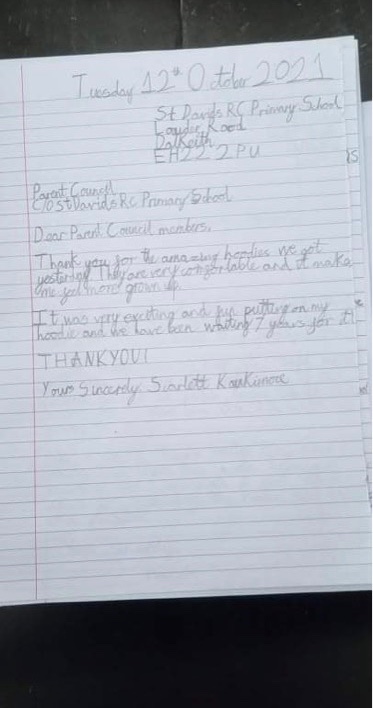 Tuesday 12th October 2021
St Davids RC Primary School
Lauder Road
Dalkeith
EH22 2PU
Parent Council
C/O St Davids RC Primary School
Dear Parent Council members,
Thank you for the amazing hoodies we got
yesterday. They are very comfortable and it make
me feel more grown up.
It was very exciting and fun putting on my
hoodie and we have been waiting 7 years for it!
THANKYOU!
Yours Sincerely Scarlett